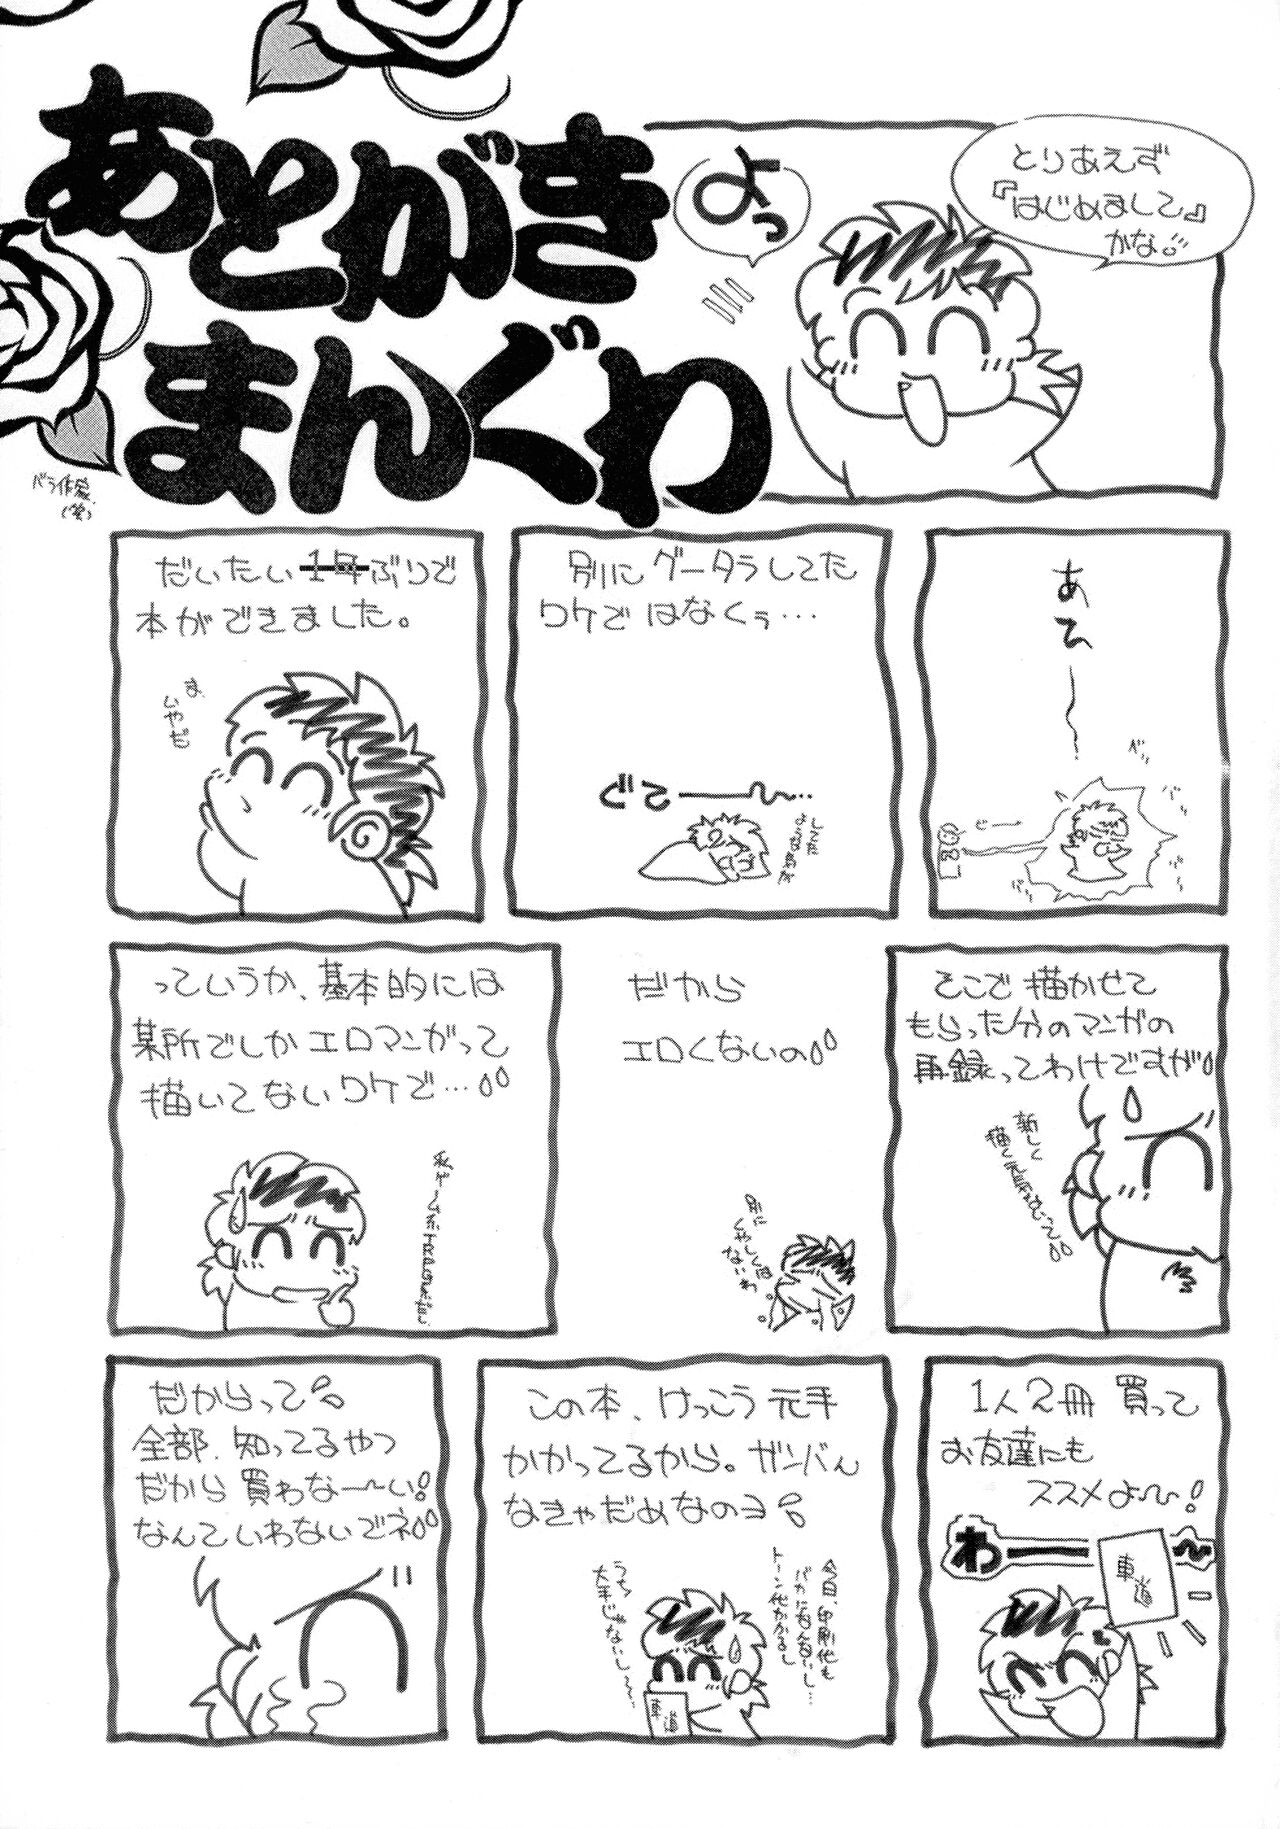 あとがき
まんぐわ
バラ
(笑)
よっ
とりあえず
『はじめまして』
かな
だいたい1年ぶりで
本ができました。
ま、
いやだ
別にグータラしてた
ワケではなくぅ…
ぐてーー…
あうーー…
っていうか、基本的には
某所でしかエロマンガって
描いてないワケで…
だから
エロくないの
別に
くやしくは
ないわ
そこで描かせて
もらった分のマンガの
再録ってわけですが
新しく
だからって
全部、知ってるやつ
だから買わな〜い!
なんていわないでネ
この本、けっこう元手
かかってるから。ガンバんなきゃだめなのヨ
うち
大手じゃないし〜
今日、印刷代も
バカになんないし…
トーン代かかるし
車道
1人2冊買って
お友達にも
ススメよ〜!
わーー〜
車道